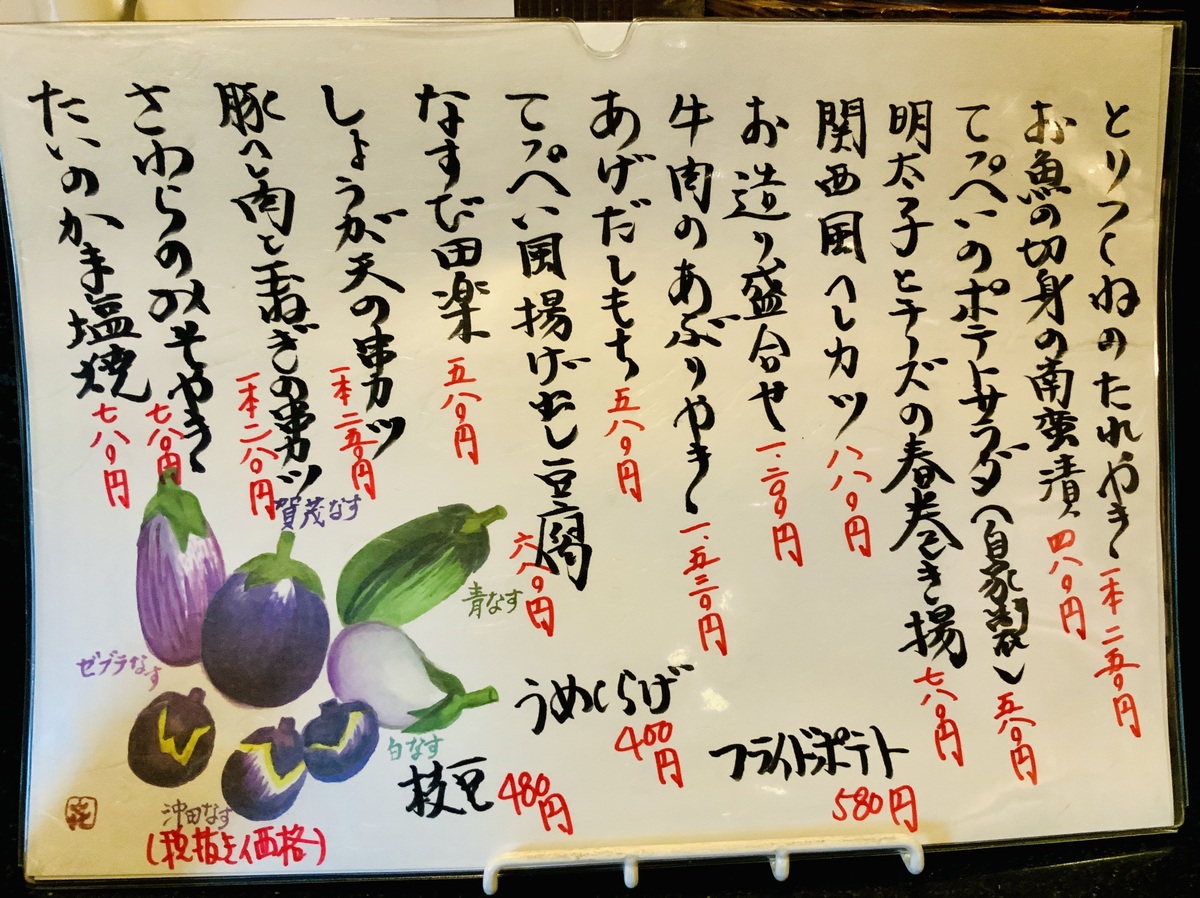 とりつくねのたれやき 一本二五〇円
お魚の切身の南蛮漬 四八〇円
てっぺいのポテトサラダ(自家製) 五八〇円
明太子とチーズの春巻き揚 七八〇円
関西風へレカツ 八八〇円
お造り盛合せ 一.二〇〇円
牛肉のあぶりやき 一.五三〇円
あげだしもち 五八〇円
てっぺい風揚げ出し豆腐 六八〇円
なすび田楽 五八〇円
しょうが天の串カツ 一本二五〇円
豚へレ肉と玉ねぎの串カツ 一本二八〇円
さわらのみそやき 七八〇円
たいのかま塩焼 七八〇円
うめくらげ 400円
フライドポテト 580円
枝豆 480円
賀茂なす
青なす
ゼブラなす
白なす
沖田なす
(税抜き価格)